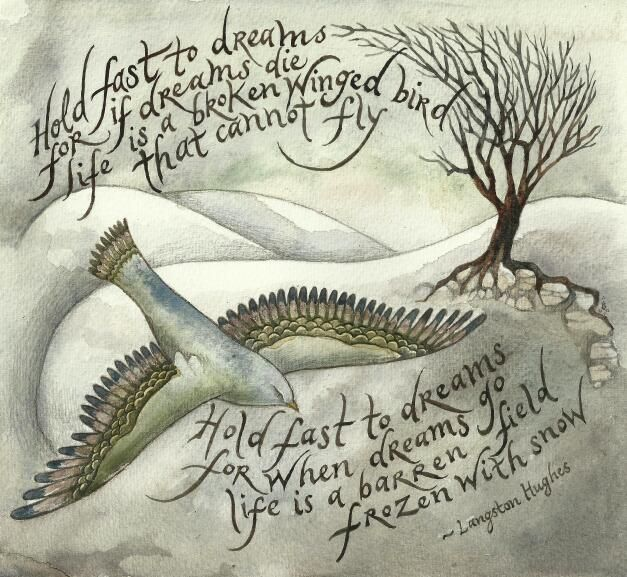 Hold fast to dreams
for if dreams die
life is a broken winged bird
that cannot fly
Hold fast to dreams
for when dreams go
life is a barren field
frozen with snow
~ Langston Hughes